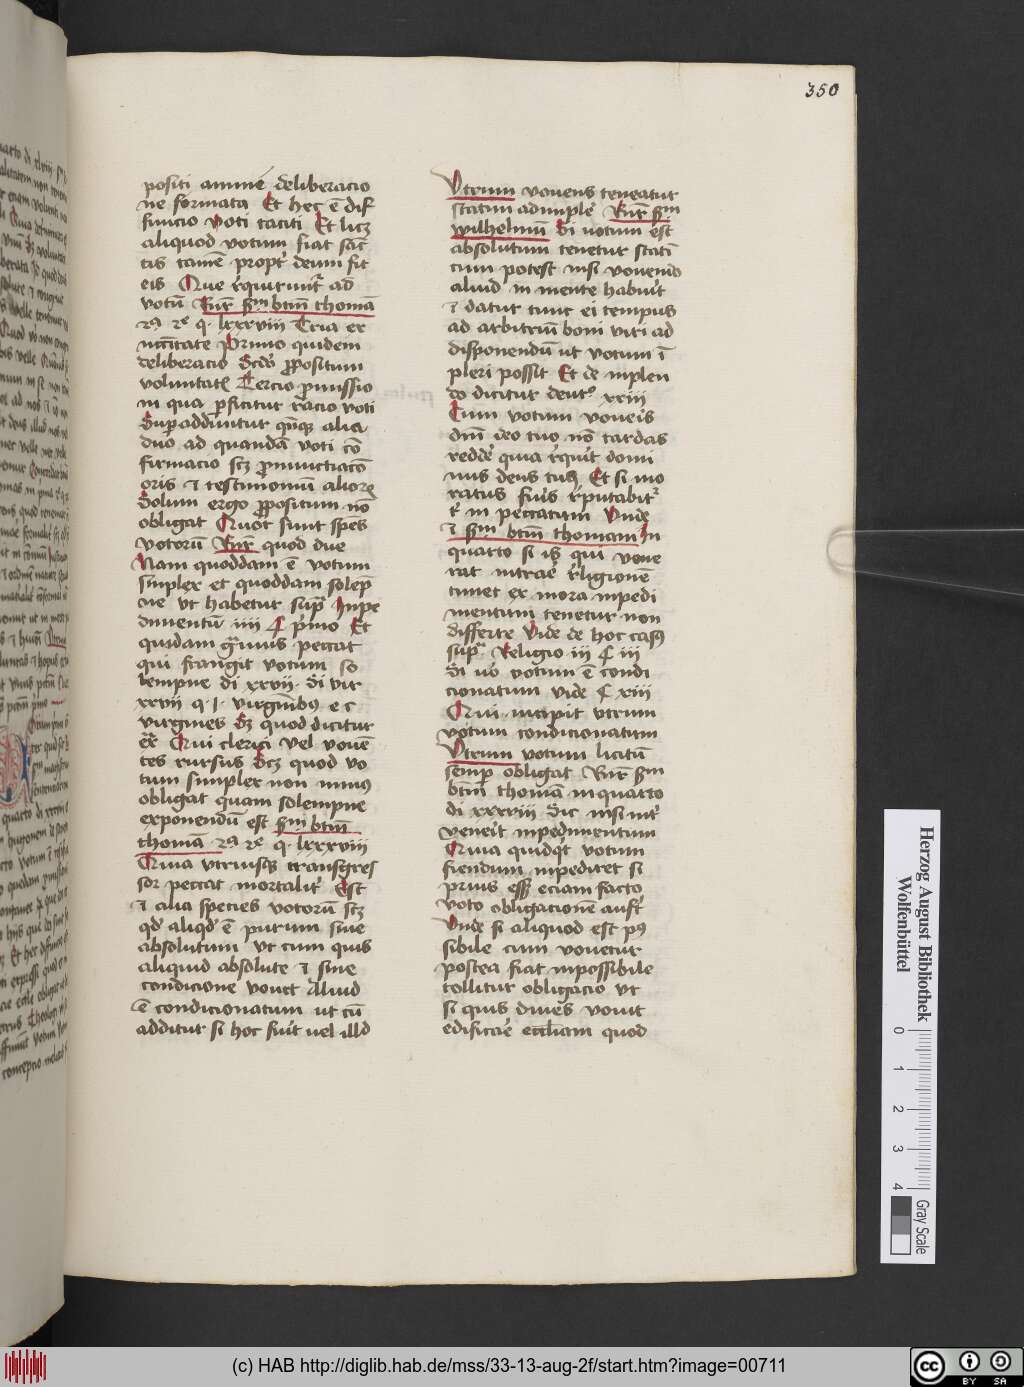 350
positi animi deliberacio
ne formata Et hec ē dif
finicio voti taciti Et licꝫ
aliquod votum fiat sāc
tis tamē propt̕ deum fit
eis Que rͥquirunt᷑ ad
votū Rn̄r ẜm btm̄ thomā
2ᵃ 2ᵉ q. lxxxviii Tria ex
nc̄c̄itate Primo quidem
deliberacio Scd̕o ꝓpositum
voluntatꝭ Tercio ꝓmissio
in qua ꝑficitur rācio voti
Suꝑadduntur qn̄qꝫ alia
duo ad quandā voti cō
firmacio scꝫ ꝓnunctiacō
oris ⁊ testimoniū alioꝝ
Solum ergo ꝓpositum nō
obligat Quot sunt spēs
votorū Rn̄r quod due
Nam quoddam ē votum
simplex et quoddam solēp
ne vt habetur sup̄ Inpe
dimentū iiii § pͥmo Et
quidam gͣuius peccat
qui frangit votum so
lempne di xxvii. Si vir
xxvii q. j. virginibꝰ e c
virgines Sꝫ quod dicitur
ex̄ Qui clerici vel vovē
tes rursus Scꝫ quod vo
tum simplex non minꝰ
obligat quam solempne
exponendū est ẜm btm̄
thomā 2ᵃ 2ᵉ q. lxxxviii
Quia vtriusqꝫ transgres
sor peccat mortalit̕ Est
⁊ alia species votorū scꝫ
qd̕ aliqd̕ ē purum siue
absolutum vt cum quis
aliquid absolute ⁊ sine
condicione vouet Aliud
ē condicionatum ut cū
additur si hoc fu̕it vel illd
Vtrum vouens teneatur
statim adimple̕ Rn̄r ẜm
wilhelmū Si uotum est
absolutum tenetur statī
cum potest nisi vouendo
aliud in mente habu̕it
⁊ datur tunc ei tempus
ad arbitriū boni viri ad
disponendū ut votum ī
pleri possit Et de inplen
do dicitur deut̕ xxiii
Cum votum voueis
dn̄i deo tuo nō tardas
redde̕ quia rͥquir̕it domi
nus deus tuꝰ Et si mo
ratus fu̕is rͥputabit᷑
t̕ in peccatum Unde
⁊ ẜm btm̄ thomam In
quarto si is qui vove
rat intrae̕ rͥligionē
timet ex mora inpedi
mentum tenetur non
differre Vide de hoc casū
sup̄ Religio iii § iii
Si u̕o votum ē condi
cionatum vide § xiii
Qui incipit vtrum
votum condicionatum
Vtrum votum licitū
semp̄ obligat Rn̄r ẜm
btm̄ thomā in quarto
di xxxviii Sic nisi int̕
vene̕it inpedimentum
Quia quidqͥt votum
fiendum inpediret si
prius esꝫ eciam facto
voto obligationē auf̕t
Unde si aliquod est pꝰ
sibile cum vovetur
postea fiat inpossibile
tollitur obligacio ut
si quis dives vovit
edificae̕ eccl̕iam quod
Herzog August Bibliothek
Wolfenbüttel
0 1 2 3 4
Gray Scale
(c) HAB http://diglib.hab.de/mss/33-13-aug-2f/start.htm?image=00711
cc BY SA